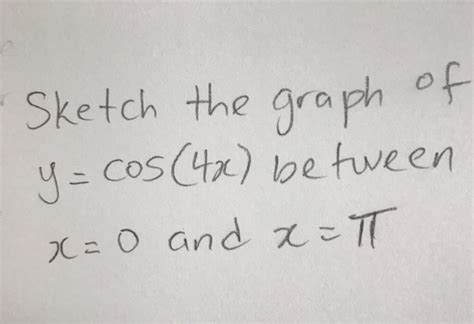 Sketch the graph of
y = cos(4x) between
x = 0 and x = π